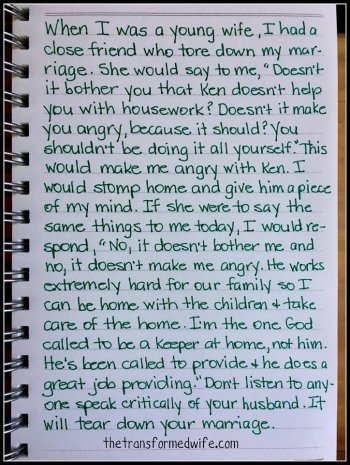 When I was a young wife, I had a
close friend who tore down my mar-
riage. She would say to me, "Doesn't
it bother you that Ken doesn't help
you with housework? Doesn't it make
you angry, because it should? You
shouldn't be doing it all yourself." This
would make me angry with Ken. I
would stomp home and give him a piece
of my mind. If she were to say the
same things to me today, I would re-
spond, "No, it doesn't bother me and
no, it doesn't make me angry. He works
extremely hard for our family so I
can be home with the children & take
care of the home. I'm the one God
called to be a keeper at home, not him.
He's been called to provide & he does a
great job providing." Don't listen to any-
one speak critically of your husband. It
will tear down your marriage.
thetransformedwife.com